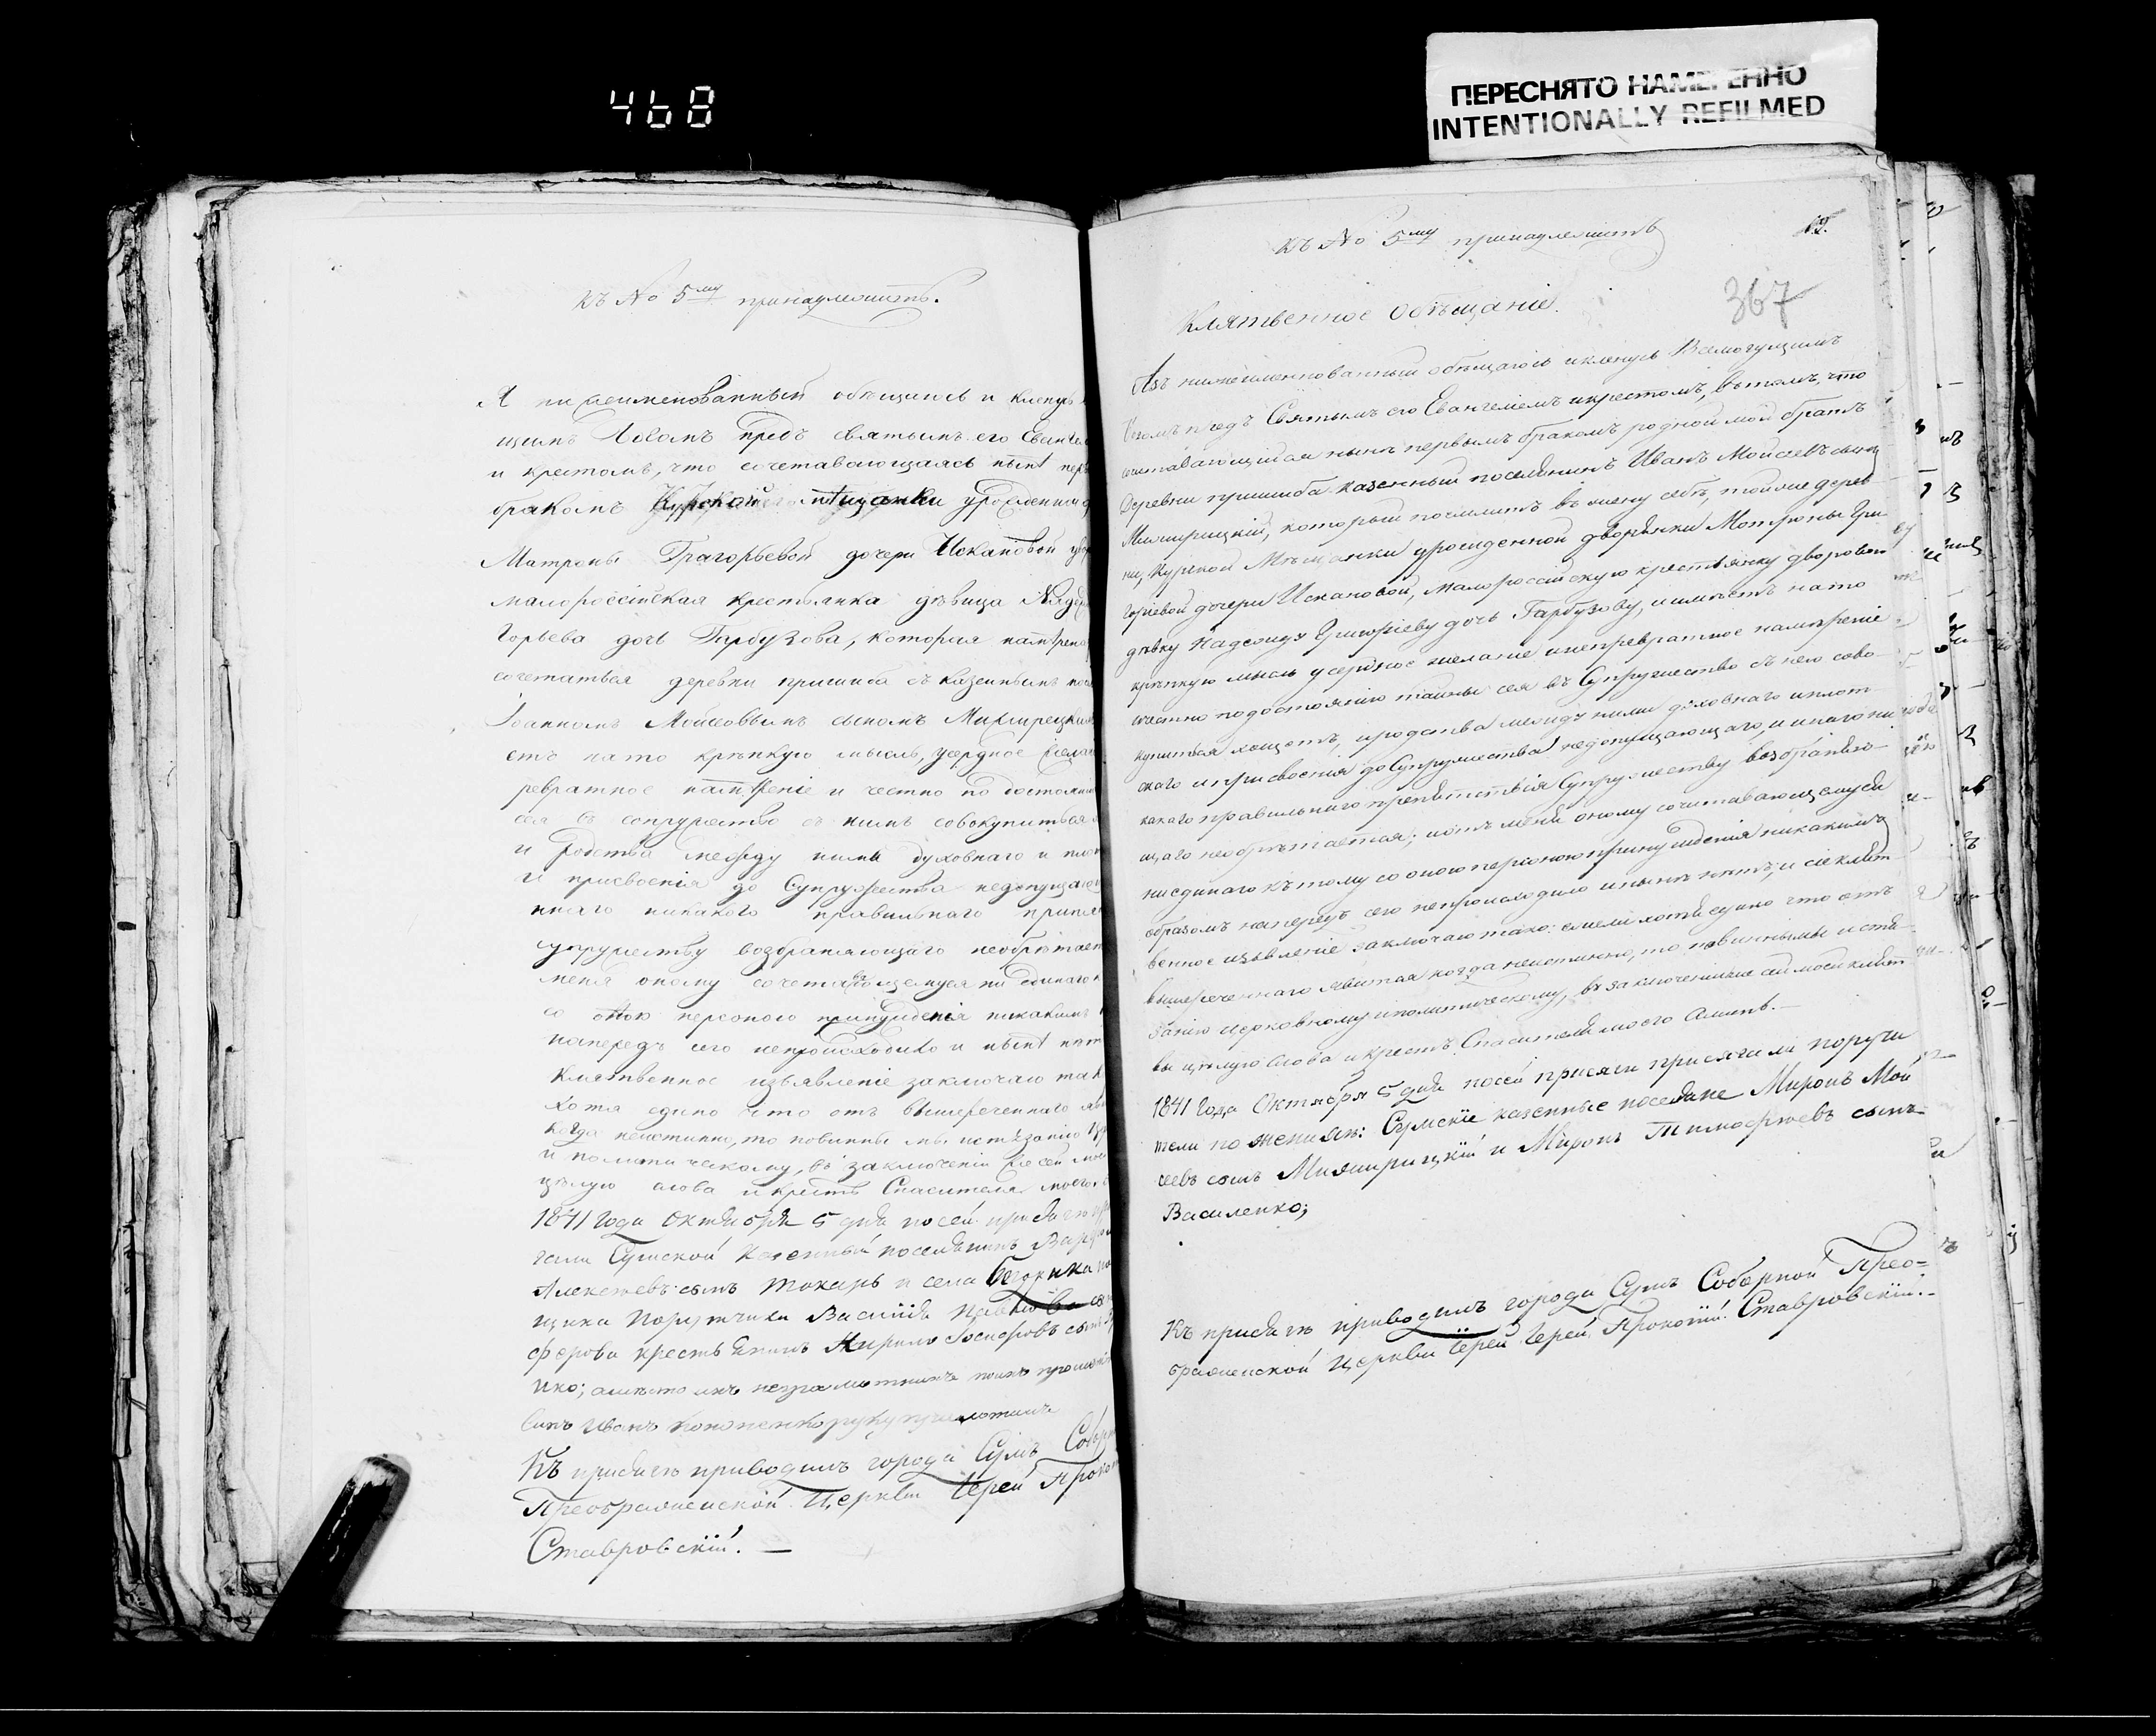 468
ПЕРЕСНЯТО НАМЕРЕННО
INTENTIONALLY REFILMED
къ No 5му принадлежитъ.
Я нижеименованный обѣщаюсь и кленусь
щимъ Богомъ предъ святымъ его Еванге
и крестомъ, что сочетавающаясь нынѣ пер
бракомъ Курской мѣщанки урожденной д
Матроны Григорьевой дочери Искановой
малороссійская крестьянка дѣвица Надеж
горьева дочь Гарбузова, которая намѣрена
сочетаться деревни пришиба съ казеннымъ посе
Іоанномъ Мойсеовымъ сыномъ Мижирецким
етъ на то крѣпкую мысль, усердное желан
ревратное намѣреніе и честно по достоянію
сея въ сопружество съ нимъ совокупиться
и родства между ними духовнаго и плот
и присвоенія до Супружества недопущающ
инаго никакого правильнаго препя
упружеству возбраняющаго необрѣтает
меня оному сочетавающемуся ни единаго к
со оною персоною принужденія никакимъ
напередъ сего непроисходило и нынѣ нѣт
Клятвенное изъявленіе заключаю так
хотя едино что отъ вышереченнаго яв
когда неистинно, то повинны мы истязанію цер
и политическому, въ заключеніи же сей мое
цѣлую слова и крестъ Спасителя моего.
1841 года Октября 5 дня по сей присягѣ пр
гали Сумской казенный поселянинъ Вар
Алексѣевъ сынъ Токарь и села
щика Порутчика Василія Павлова сы
ферова крестьянинъ Кирило Іосифовъ сынъ
нко; а вмѣсто ихъ неграмотныхъ
Иванъ Кононенко руку приложилъ
Къ присягѣ приводилъ города Сумъ Собор
Преображенской Церкви Іерей Проко
Ставровскій. —
къ No 5му принадлежитъ
19.
367
Клятвенное обѣщаніе.
Азъ нижеименнованный обѣщаюсь и кленусь Всемогущимъ
Богомъ предъ Святымъ его Евангеліемъ и крестомъ, въ томъ, что
сочетавающійся нынѣ первымъ бракомъ родной мой братъ
Деревни пришиба казенный поселянинъ Иванъ Мойсеевъ сынъ
Мижирицкій, который поемлитъ въ жену себѣ, той же дерев
ни, Курской Мѣщанки урожденной дворянки Мотроны Гри
горіевой дочери Искановой, малороссійскую крестьянку дворовою
дѣвку Надежду Григоріеву дочь Гарбузову, и имѣетъ на то
крѣпкую мысль усердное желаніе и непревратное намѣреніе
честно по достоянію тайны сея въ Супружество съ нею сово-
купиться хощетъ, и родства между ними духовнаго и плот
скаго и присвоенія до Супружества недопущающаго, и инаго ни
какаго правильнаго препятствія Супружеству возбраняю-
щаго необрѣтается; и отъ меня оному сочетавающемуся
ни единаго къ тому со оною персоною принужденія никакимъ
образомъ напередъ сего непроисходило и нынѣ нѣтъ, и сіе клят
венное изъявленіе заключаю тако: ежели хотя едино что отъ
вышереченнаго явится когда неистинно, то повинными истя
занію церковному и политическому, въ заключеніи же сей моей клят
вы цѣлую слова и крестъ Спасителя моего Аминь.—
1841 года Октября 5 дня по сей присяги присягали поручи
тели по женихѣ: Сумскіе казенные поселяне Миронъ Мой
сеевъ сынъ Мижирицкій и Миронъ Тимофѣевъ сынъ
Василенко;
Къ присягѣ приводилъ города Сумъ Соборной Прео-
браженской Церкви Іерей Іерей Прокопій Ставровскій.-